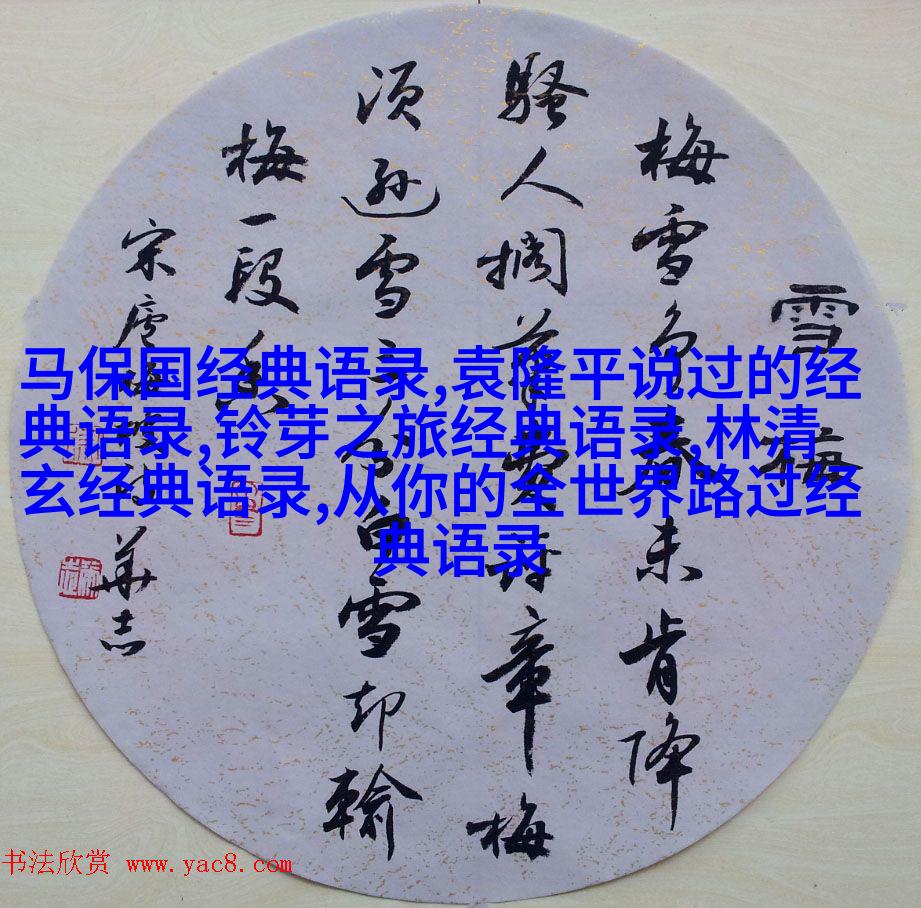 雪梅
梅雪争春未肯降
騷人擱筆费评章梅
须逊雪三分白雪却輸
梅一段香
宋盧梅坡诗 華志
马保国经典语录,袁隆平说过的经
典语录,铃芽之旅经典语录,林清
玄经典语录,从你的全世界路过经
典语录
书法欣赏 www.yac8.com